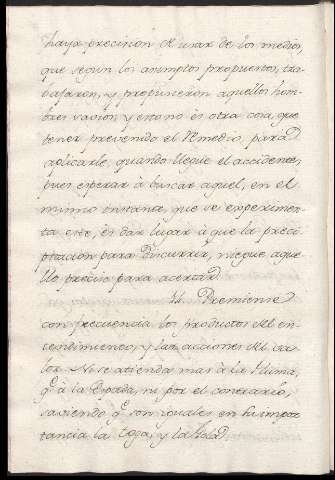 haya precision de usar de los medios,
que segun los asumptos propuestos, tra-
bajaron, y propusieron aquellos hom-
bres savios, y esto no es otra cosa, que
tener prevenido el Remedio, para
aplicarle, quando llegue el accidente,
pues esperar à buscar aquel, en el
mismo instante, que se experimen-
ta este, es dar lugar à que la preci-
pitacion para discurrir, niegue aque-
llo preciso para acertar.
Premiense
con frecuencia los productos del en-
tendimiento, y las acciones del va-
lor. No se atienda mas à la Pluma,
q.e à la Espada, ni por el contrario,
saviendo q.e son iguales en la impor-
tancia la toga, y la